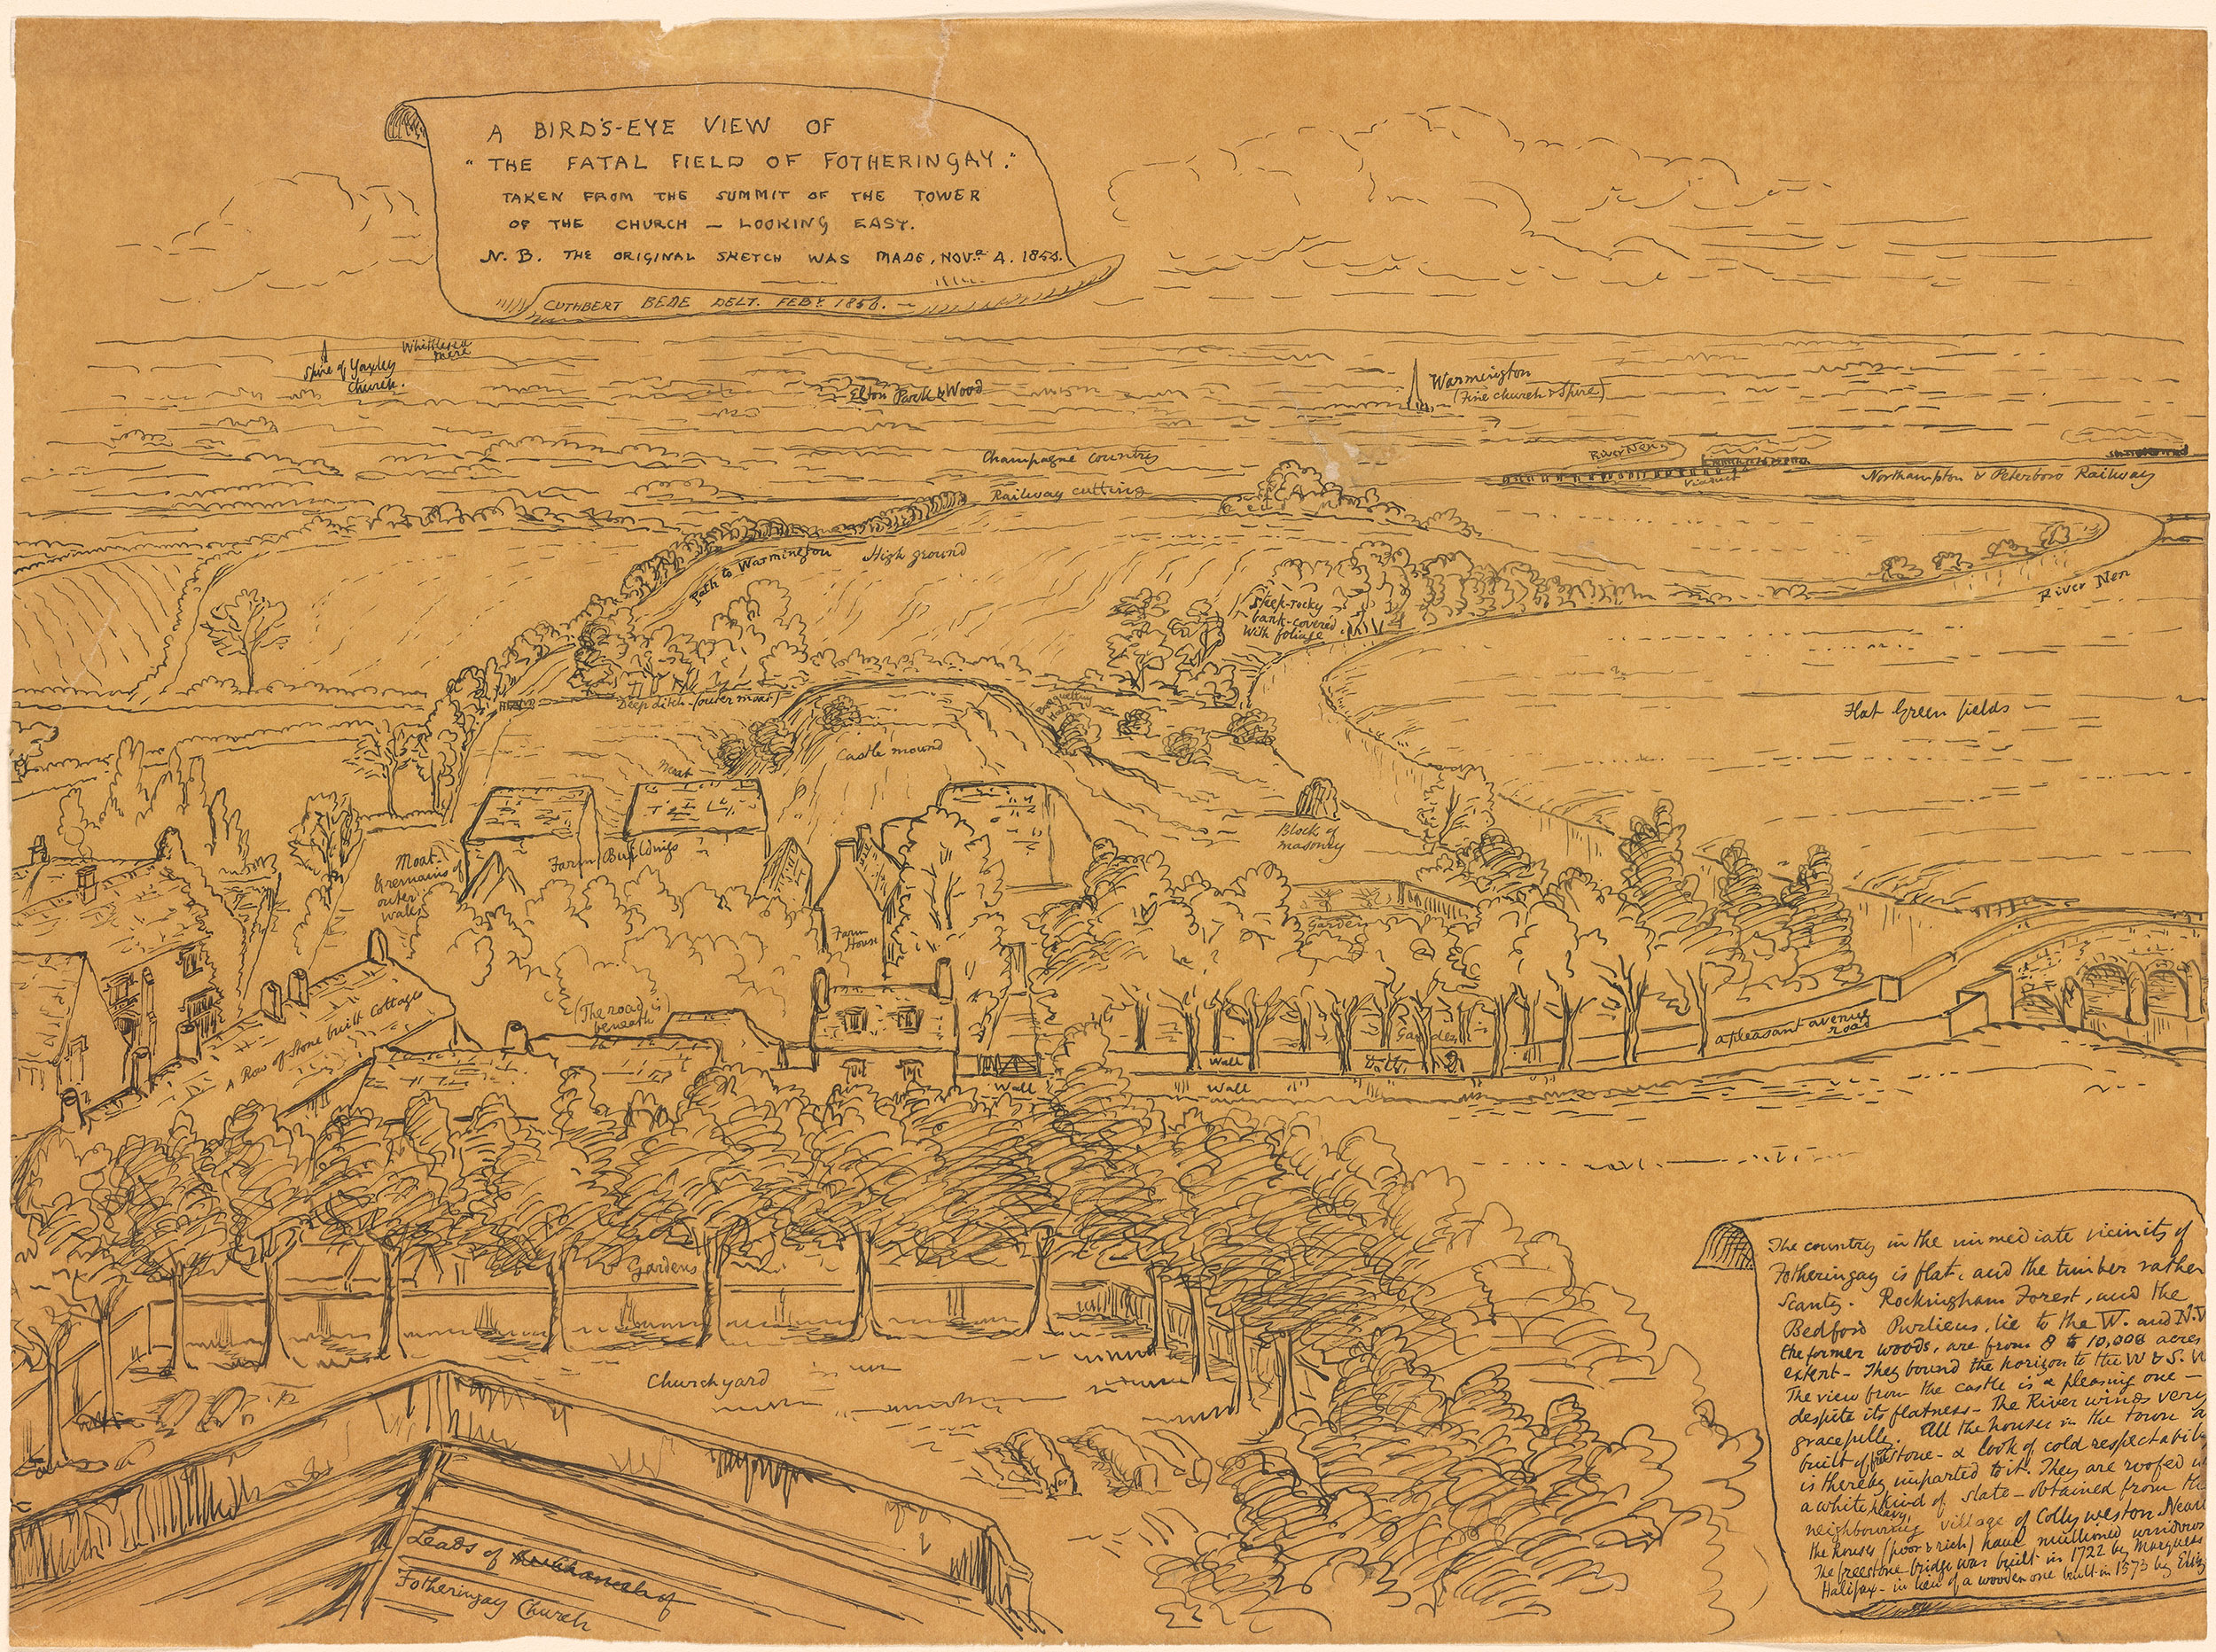 A BIRD'S-EYE VIEW OF
"THE FATAL FIELD OF FOTHERINGAY."
TAKEN FROM THE SUMMIT OF THE TOWER
OF THE CHURCH — LOOKING EAST.
N. B. THE ORIGINAL SKETCH WAS MADE, NOVR. 4. 1854.
CUTHBERT BEDE DELT. FEBY. 1856. —
Spire of Yaxley
Church.
Whittlesea
Mere
Elton Park & Wood
Warmington
(Fine church & Spire)
Champagne country
Railway cutting
River Nen
Viaduct
Northampton & Peterboro Railway
Path to Warmington
High ground
River Nen
Steep-rocky
bank-covered
with foliage
Deep ditch (outer moat)
Banquetting
Hall
Flat Green fields
Castle mound
Moat
Block of
masonry
Moat-
& remains of
outer
wall
Farm Buildings
Farm
House
Garden
(The road is
beneath)
A Row of Stone built Cottages
Garden
a pleasant avenue
road
Wall
Wall
Wall
Gardens
Churchyard
Leads of
Fotheringay Church
The country in the immediate vicinity of
Fotheringay is flat, and the timber rather
scanty. Rockingham Forest, and the
Bedford Purlieus, lie to the W. and N.W
the former woods, are from 8 to 10,000 acres
extent - They bound the horizon to the W & S. W
The view from the castle is a pleasing one —
despite its flatness - The River winds very
gracefully. All the houses in the town a
built of freestone - & look of cold respectabili
is thereby imparted to it. They are roofed
a white heavy kind of slate - obtained from the
neighbouring village of Collyweston. Nearl
the houses (poor & rich) have mullioned windows
The freestone bridge was built in 1722 by Marquess
Halifax - in lieu of a wooden one built in 1573 by Eliz